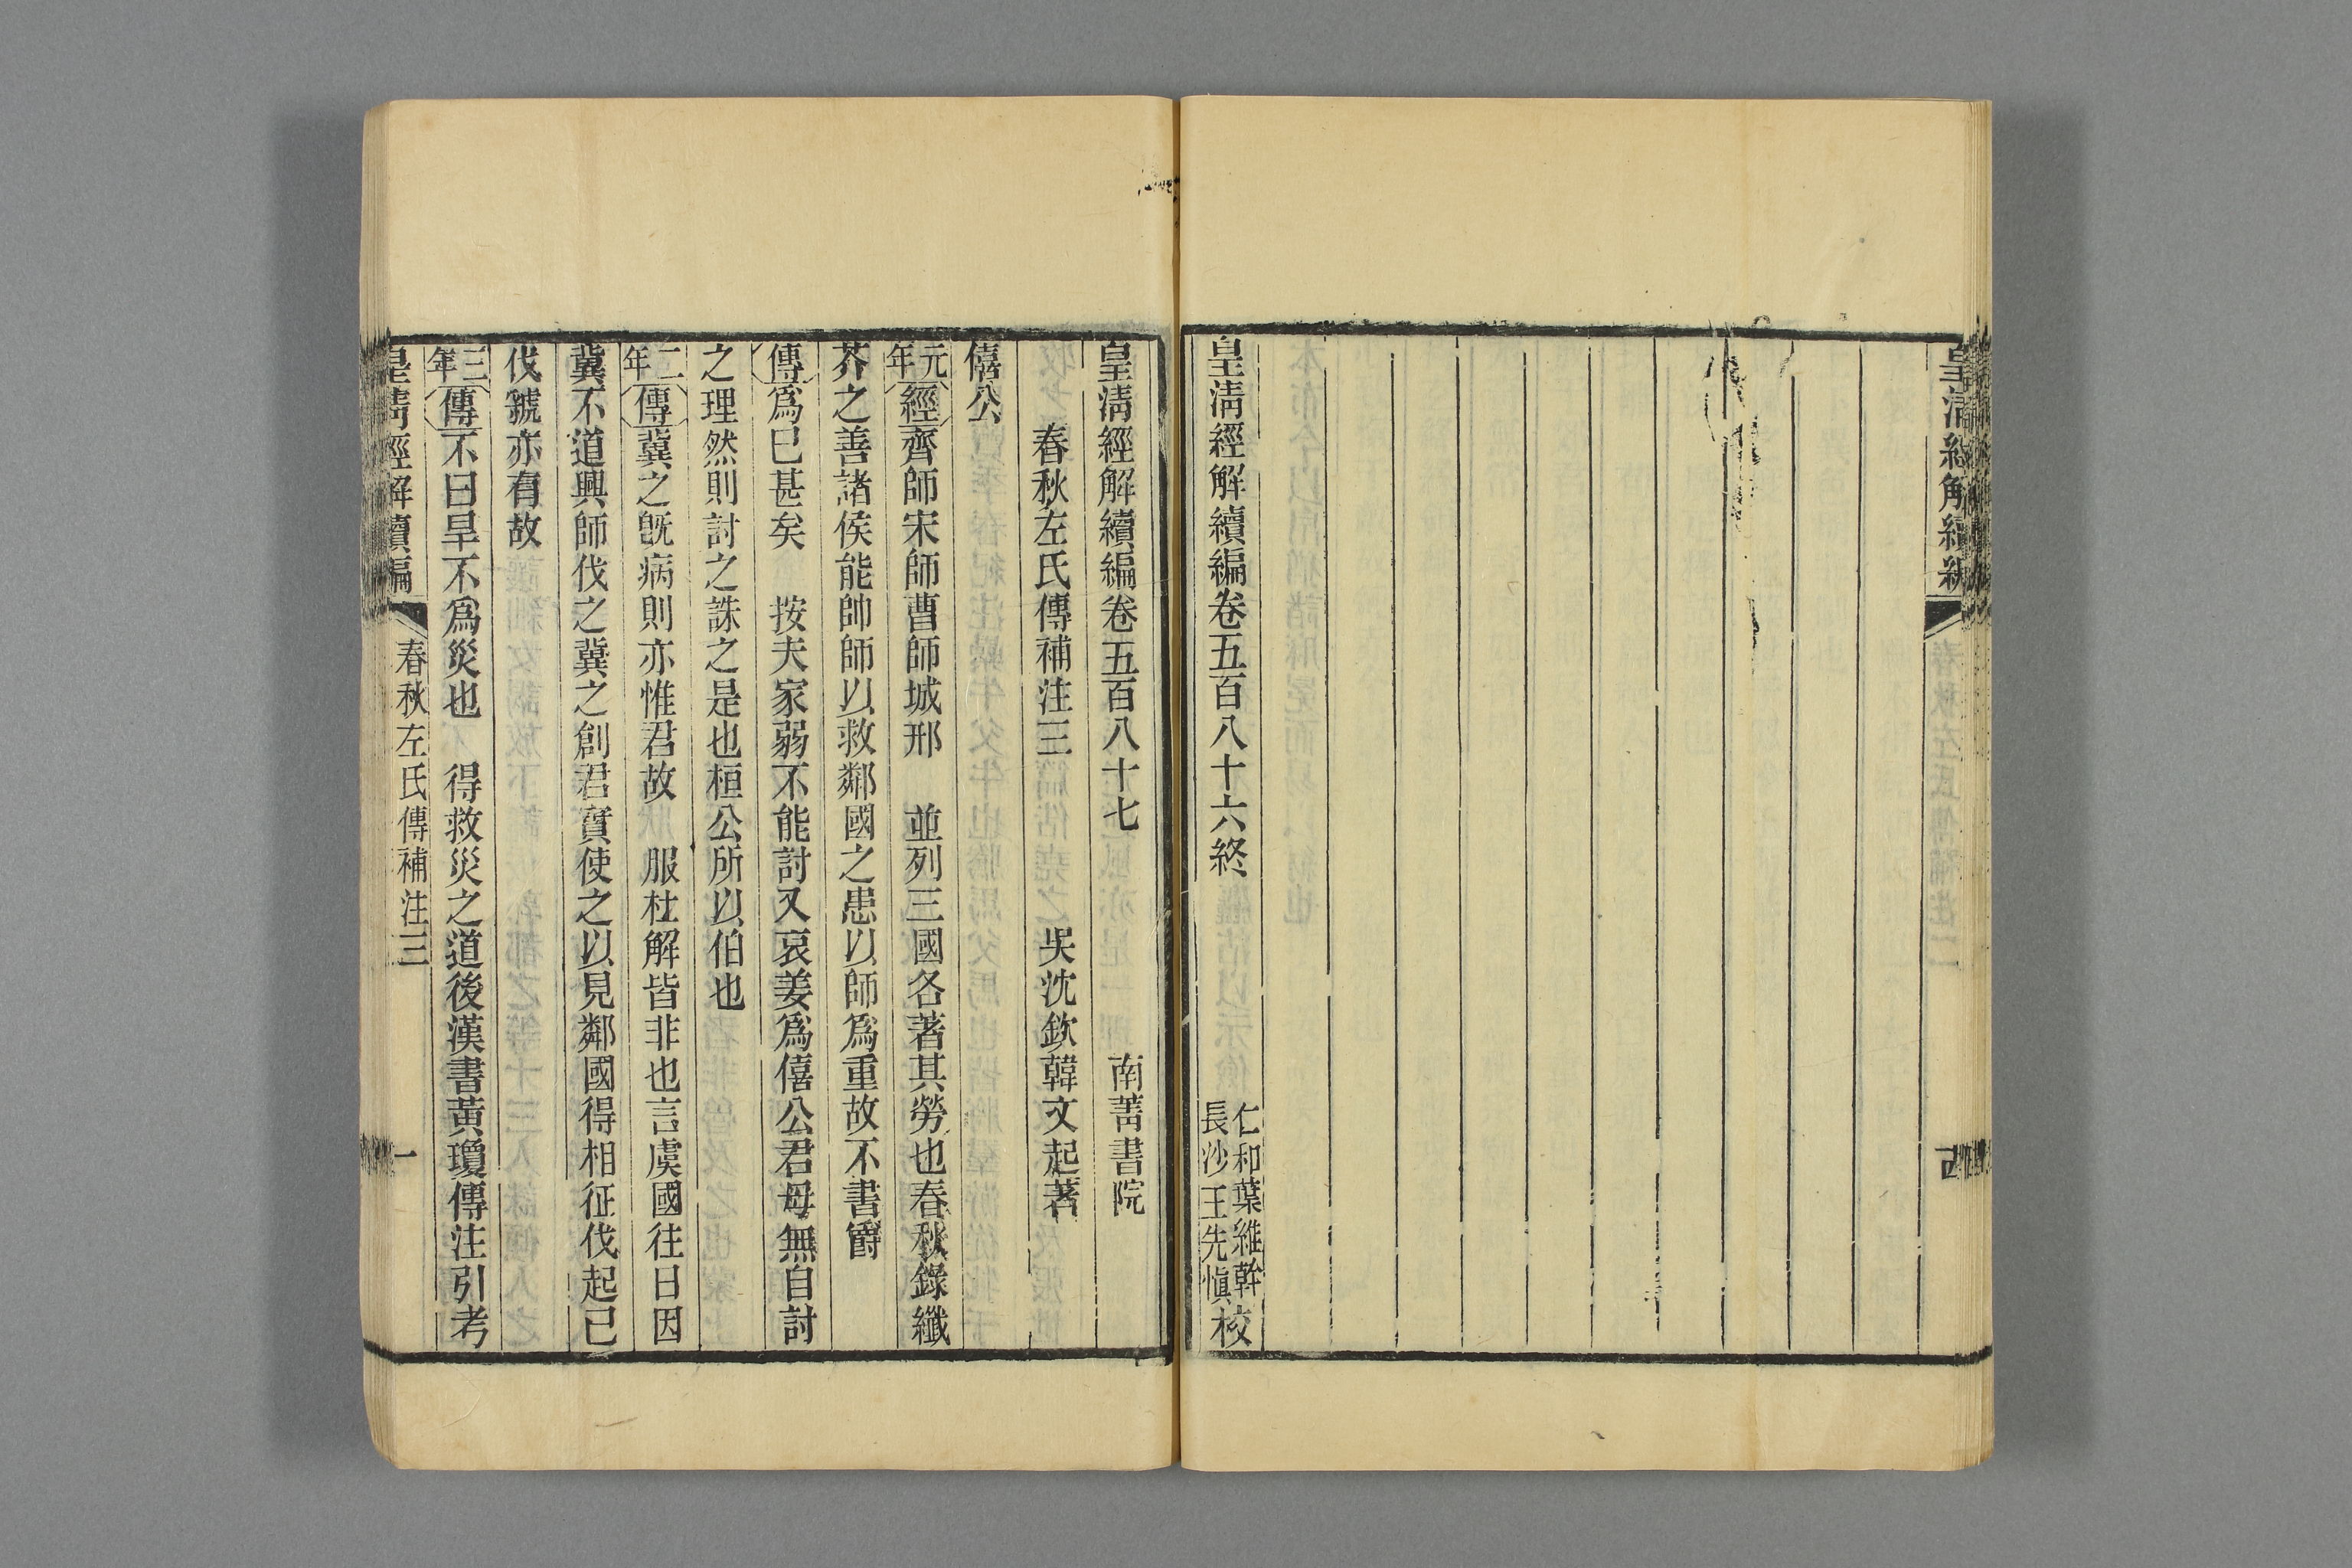 皇清經解續編
皇清經解續編卷五百八十六終
仁和葉維幹
長沙王先慎校
皇清經解續編卷五百八十七 南菁書院
春秋左氏傳補注三 吳沈欽韓文起著
僖公
元年經齊師宋師曹師城邢 並列三國各著其勞也春秋錄纖
芥之善諸侯能帥師以救鄰國之患以師爲重故不書爵
傳爲已甚矣 按夫家弱不能討又哀姜爲僖公君母無自討
之理然則討之誅之是也桓公所以伯也
二年傳冀之旣病則亦惟君故 服杜解皆非也言虞國往日因
冀不道興師伐之冀之創君實使之以見鄰國得相征伐起己
伐虢亦有故
三年傳不曰旱不爲災也 得救災之道後漢書黃瓊傳注引考
皇清經解續編 春秋左氏傳補注三 一